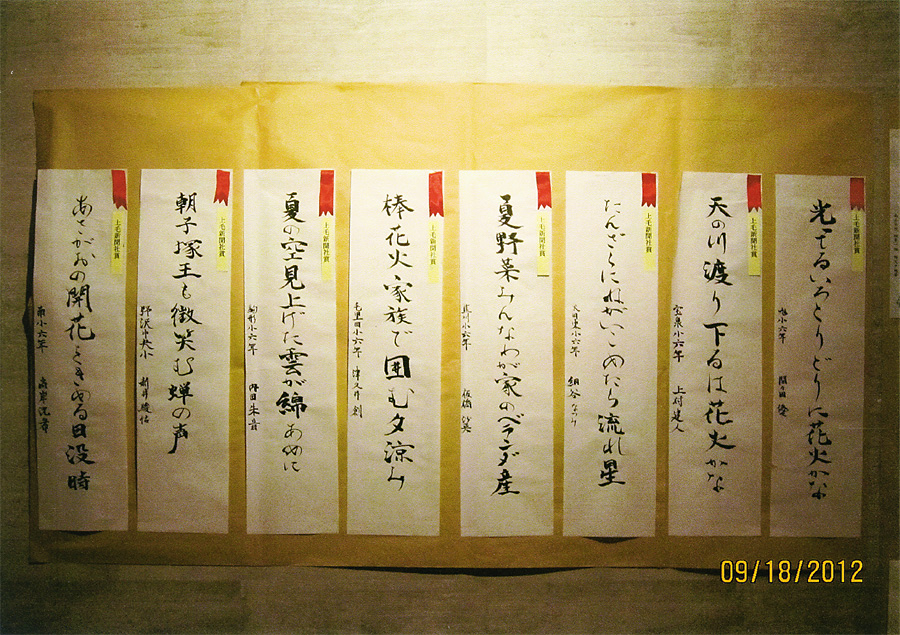 光てるいろとりどりに花火かな
上毛新聞社賞
天の川渡り下るは花火かな
宝泉小六年 上村建人
上毛新聞社賞
たんざくにねがいこめたら流れ星
細谷
上毛新聞社賞
夏野菜みんなわが家のベランダ産
上毛新聞社賞
棒花火家族で囲む夕涼み
毛里田小六年 津久井創
上毛新聞社賞
夏の空見上げた雲が綿あめに
駒形小六年
上毛新聞社賞
朝子塚王も微笑む蝉の声
野沢中央小 新井駿佑
上毛新聞社賞
あさがおの開花ときめる日没時
南小六年
上毛新聞社賞
09/18/2012